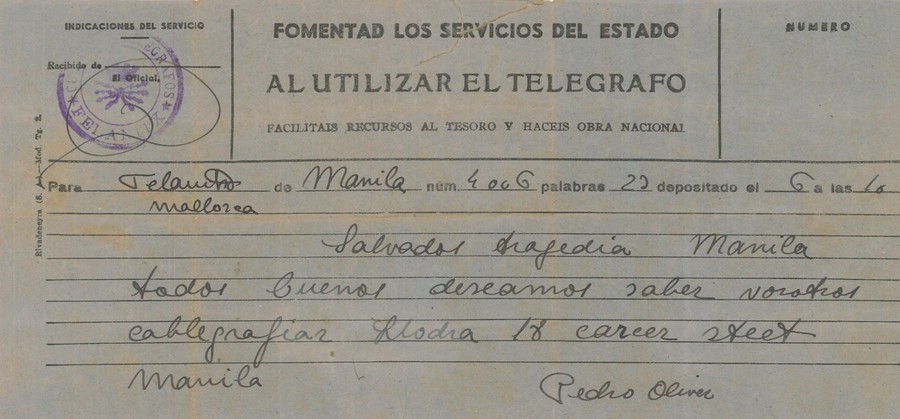 INDICACIONES DEL SERVICIO
FOMENTAD LOS SERVICIOS DEL ESTADO
NUMERO
Recibido de
El Oficial,
AL UTILIZAR EL TELEGRAFO
FACILITAIS RECURSOS AL TESORO Y HACEIS OBRA NACIONAL
Rivadeneyra (S. A.).—Mod. Tg. 2.
Para de Manila núm. 4006 palabras 22 depositado el 6 a las 10
Mallorca
Salvados tragedia Manila
todos buenos deseamos saber vosotros
cablegrafiar 18 carcer steet
Manila
Pedro Oliver